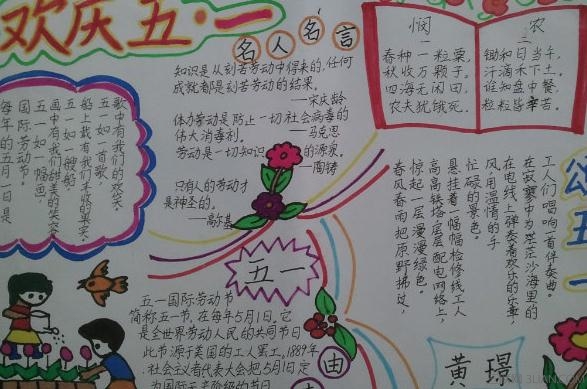 欢庆五·一
名人名言
知识是从刻苦劳动中得来的,任何
成就都是刻苦劳动的结果。
——宋庆龄
体力劳动是防止一切社会病毒的
伟大消毒剂。
——马克思
劳动是一切知识的源泉。
——陶铸
只有人的劳动才
是神圣的。
——高尔基
悯 农
一
春种一粒粟,
秋收万颗子。
四海无闲田,
农夫犹饿死。
二
锄禾日当午,
汗滴禾下土。
谁知盘中餐,
粒粒皆辛苦。
每年的五月一日是
国际劳动节。
五一如一幅色,
画中有我们甜美的笑容
五一如一艘船
船上载有我们丰收的果实。
五一如一首歌,
歌中有我们的欢笑。
颂五
春风春雨把原野拂过,
惊起一层漫漫绿色。
高高铁塔层层配电网络上,
悬挂着一幅幅检修线工人
忙碌的景色。
风用温情的手
在电线上弹奏着欢乐的乐章,
在寂寥中为茫茫沙海里的
工人们唱响一首伴奏曲。
五一
五一国际劳动节
简称五一节,在每年5月1日,它
是全世界劳动人民的共同节日
此节源于美国的工人罢工,1889年
社会主义者代表大会把5月1日定
为国际无产阶级的节日
由
黄璟